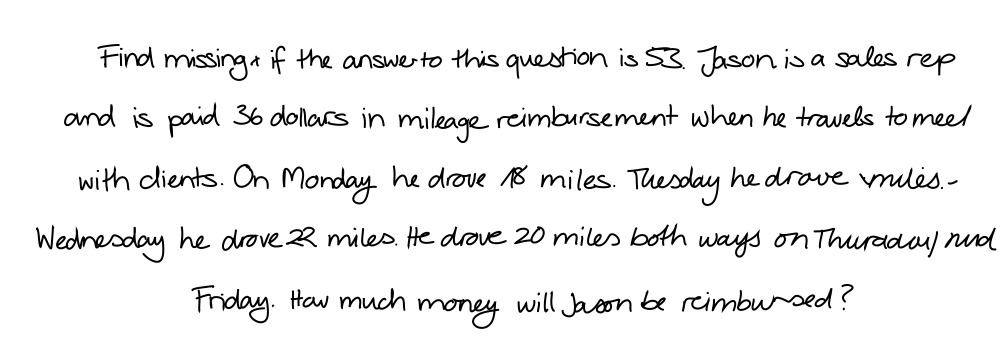 Find missing x if the answer to this question is 53. Jason is a sales rep
and is paid 36 dollars in mileage reimbursement when he travels to meet
with clients. On Monday he drove 18 miles. Tuesday he drove x miles.
Wednesday he drove 22 miles. He drove 20 miles both ways on Thursday and
Friday. How much money will Jason be reimbursed?